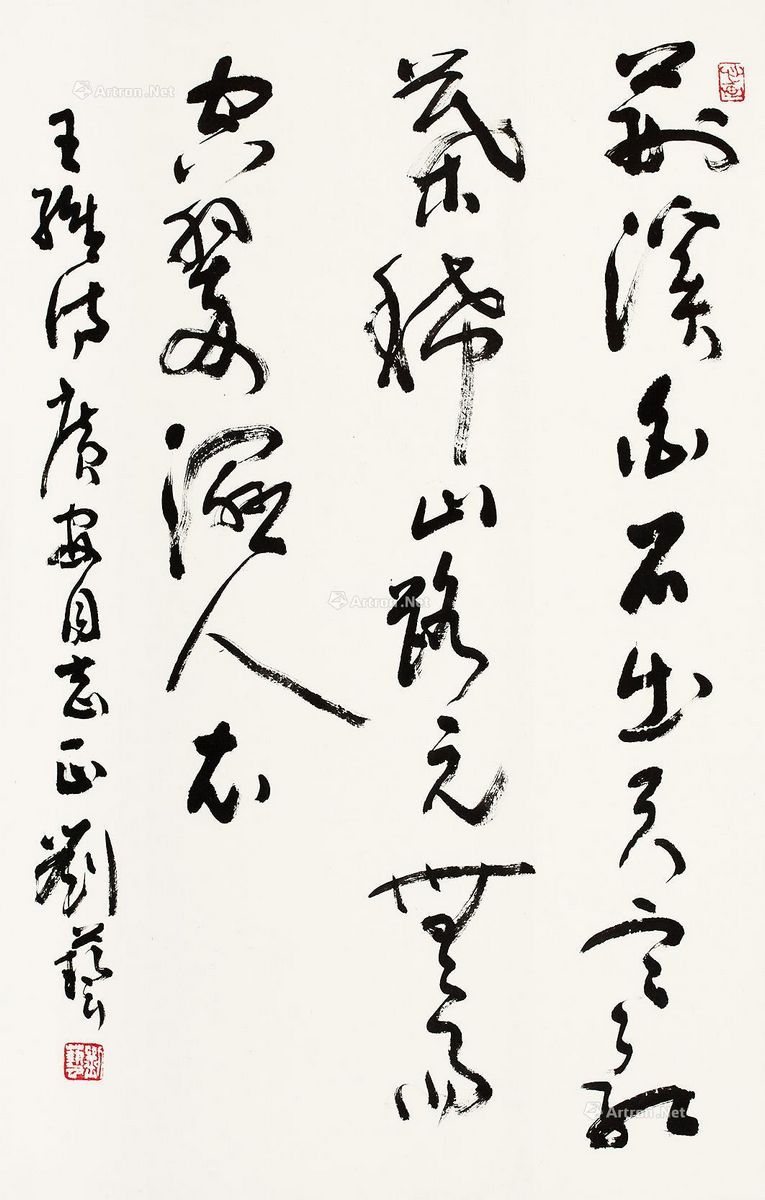 荆溪白石出天寒红
葉稀山路元無雨
空翠濕人衣
王維詩 廣安同志正 劉藝
劉藝
Artron.Net
Artron.Net
Artron.Net